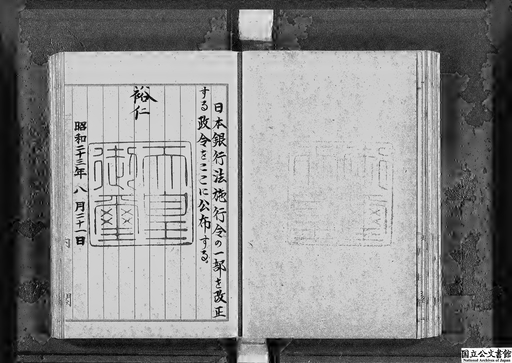 日本銀行法施行令の一部を改正
する政令をここに公布する。
裕仁
天皇
御璽
昭和二十三年八月二十一日
国立公文書館
National Archives of Japan